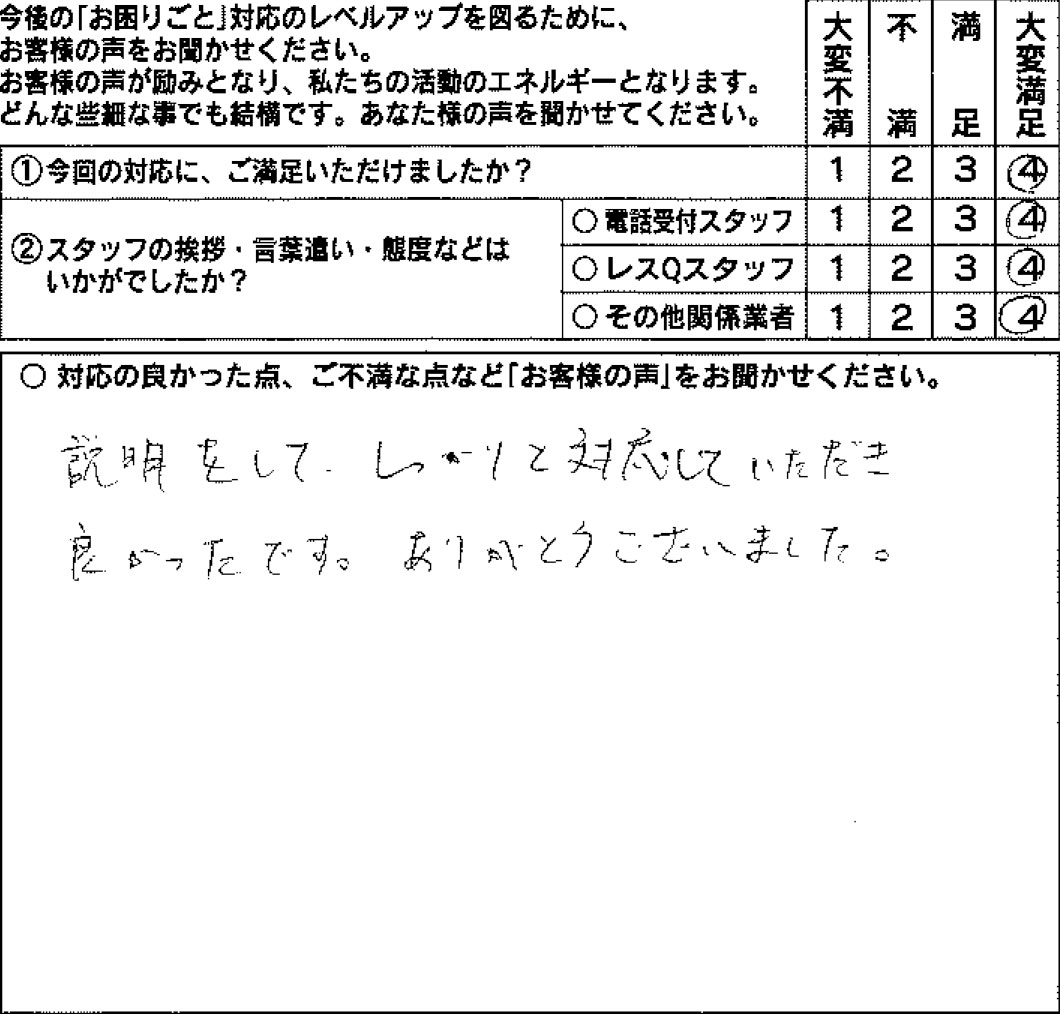 今後の｢お困りごと｣対応のレベルアップを図るために、
お客様の声をお聞かせください。
お客様の声が励みとなり、私たちの活動のエネルギーとなります。
どんな些細な事でも結構です。あなた様の声を聞かせてください。
大変不満 不満 満足 大変満足
①今回の対応に、ご満足いただけましたか？ 1 2 3 4
②スタッフの挨拶・言葉遣い・態度などは
いかがでしたか？
○ 電話受付スタッフ 1 2 3 4
○ レスQスタッフ 1 2 3 4
○ その他関係業者 1 2 3 4
○ 対応の良かった点、ご不満な点など｢お客様の声｣をお聞かせください。
説明をして、しっかりと対応していただき
良かったです。ありがとうございました。